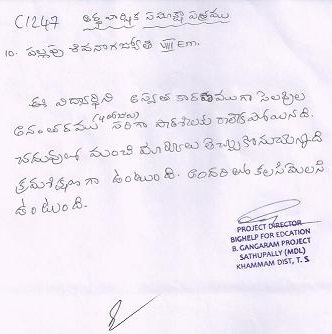 C1247 అర్ధ వార్షిక సమీక్షా పత్రము
10. పల్లపు శివనాగజ్యోతి VIII Em.
ఈ విద్యార్థిని అస్వస్థ కారణముగా సెలవుల
అనంతరము సరిగా పాఠశాలకు రాలేకపోయినది.
చదువులో మంచి మార్కులు తెచ్చుకొనుచున్నది
క్రమశిక్షణగా ఉంటుంది. అందరితో కలసిమెలసి
ఉంటుంది.
PROJECT DIRECTOR
BIGHELP FOR EDCATION
B. GANGARAM PROJECT
SATHUPALLY (MDL)
KHAMMAM DIST, T. S